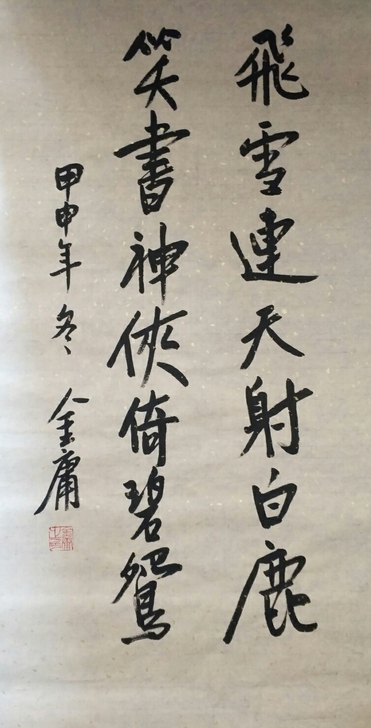 飛雪連天射白鹿
笑書神俠倚碧鴛
甲申年冬 金庸